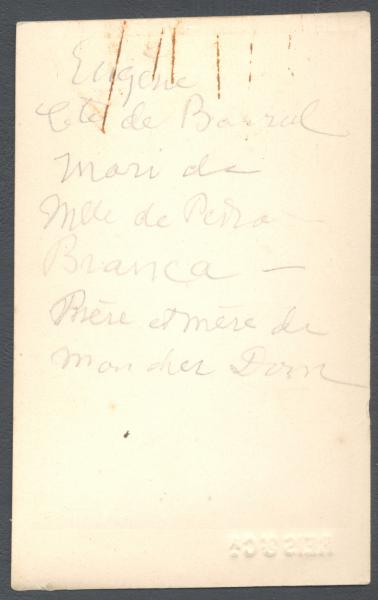 Eugène
Cte de Barral
Mari de
Mlle de Pedra
Branca —
Père et mère de
mon cher Dom